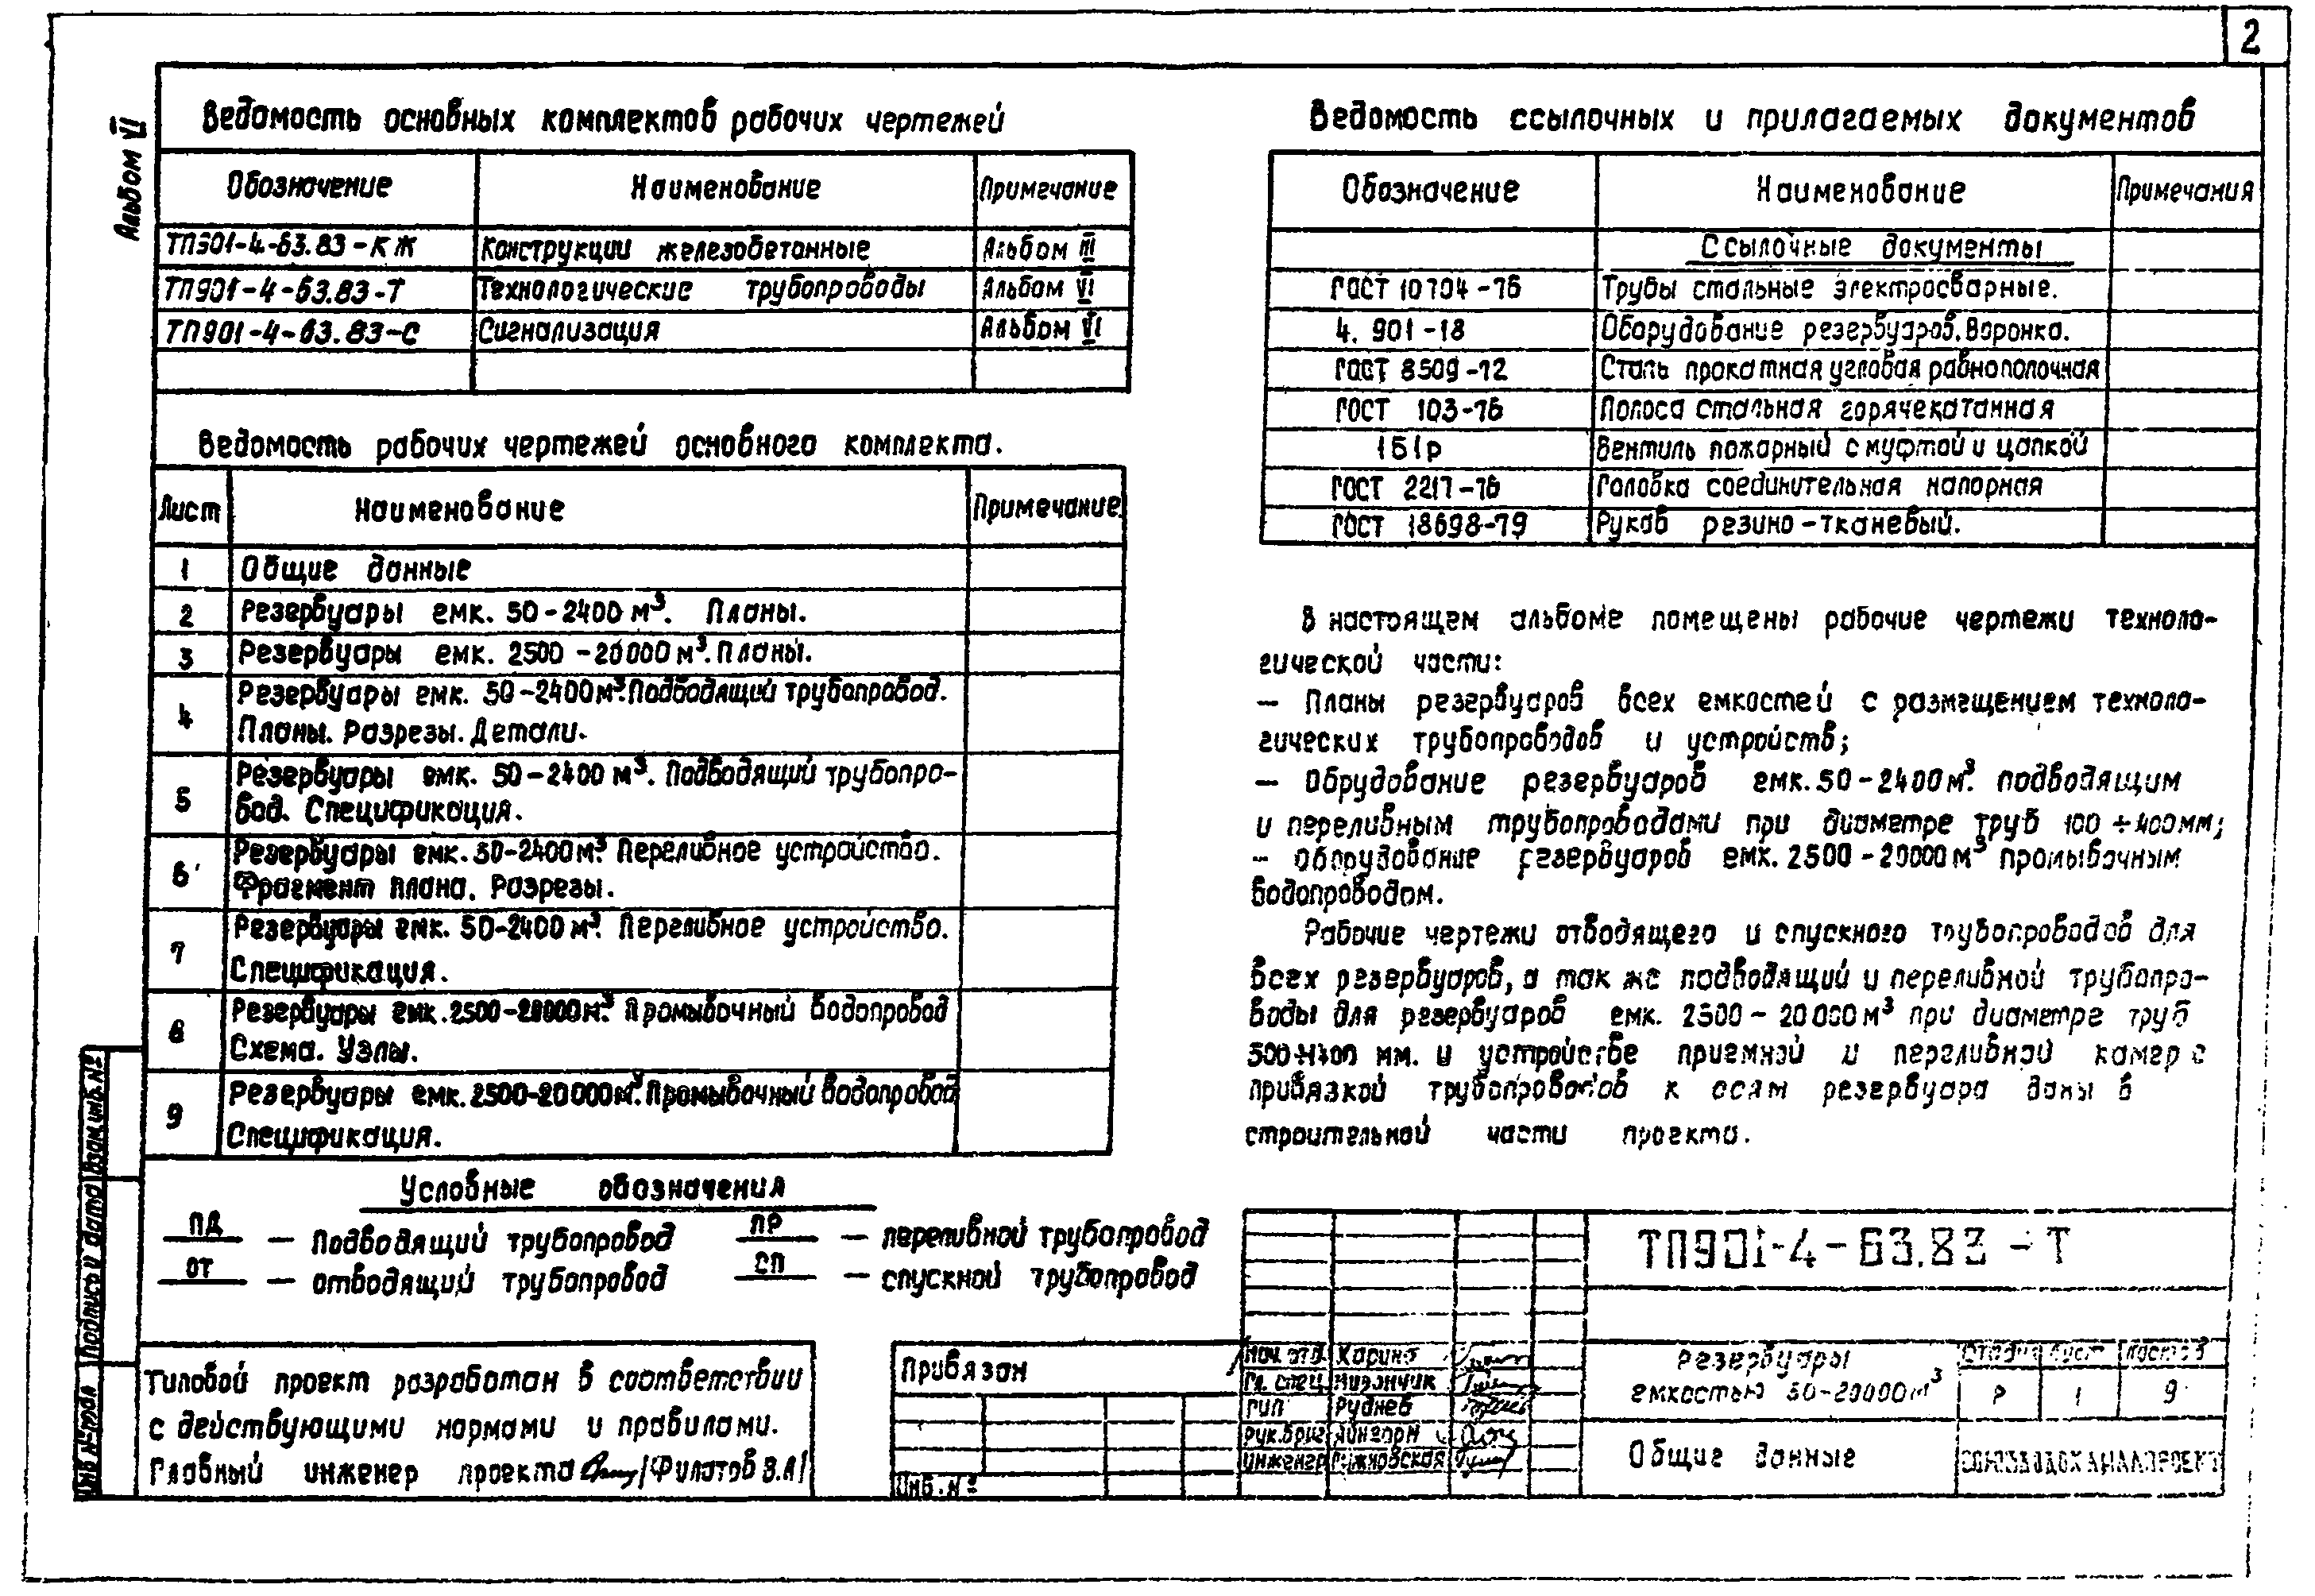 2
Альбом VI
Ведомость основных комплектов рабочих чертежей
Обозначение Наименование Примечание
ТП901-4-63.83-КЖ Конструкции железобетонные Альбом III
ТП901-4-63.83-Т Технологические трубопроводы Альбом VI
ТП901-4-63.83-С Сигнализация Альбом VI
Ведомость рабочих чертежей основного комплекта.
Лист Наименование Примечание
1 Общие данные
2 Резервуары емк. 50-2400 м³. Планы.
3 Резервуары емк. 2500-20000 м³. Планы.
4 Резервуары емк. 50-2400 м³. Подводящий трубопровод.
Планы. Разрезы. Детали.
5 Резервуары емк. 50-2400 м³. Подводящий трубопро-
вод. Спецификация.
6 Резервуары емк. 50-2400 м³. Переливное устройство.
Фрагмент плана. Разрезы.
7 Резервуары емк. 50-2400 м³. Переливное устройство.
Спецификация.
8 Резервуары емк. 2500-20000 м³. Промывочный водопровод
Схема. Узлы.
9 Резервуары емк. 2500-20000 м³. Промывочный водопровод
Спецификация.
Условные обозначения
ПД — Подводящий трубопровод
ПР — переливной трубопровод
ОТ — отводящий трубопровод
СП — спускной трубопровод
Типовой проект разработан в соответствии
с действующими нормами и правилами.
Главный инженер проекта /Филатов В.А/
Ведомость ссылочных и прилагаемых документов
Обозначение Наименование Примечания
Ссылочные документы
ГОСТ 10704-76 Трубы стальные электросварные.
4.901-18 Оборудование резервуаров. Воронка.
ГОСТ 8509-72 Сталь прокатная угловая равнополочная
ГОСТ 103-76 Полоса стальная горячекатанная
151р Вентиль пожарный с муфтой и цапкой
ГОСТ 2217-76 Головка соединительная напорная
ГОСТ 18698-79 Рукав резино-тканевый.
В настоящем альбоме помещены рабочие чертежи техноло-
гической части:
— Планы резервуаров всех емкостей с размещением техноло-
гических трубопроводов и устройств;
— Обрудование резервуаров емк. 50-2400 м³. подводящим
и переливным трубопроводами при диаметре труб 100÷400мм;
— оборудование резервуаров емк. 2500-20000 м³ промывочным
водопроводом.
Рабочие чертежи отводящего и спускного трубопроводов для
всех резервуаров, а так же подводящий и переливной трубопро-
воды для резервуаров емк. 2500-20000 м³ при диаметре труб
500÷1400 мм. и устройстве приемной и переливной камер с
привязкой трубопроводов к осям резервуара даны в
строительной части проекта.
Инв. № подл Подпись и дата Взам. инв. №
Привязан
Инв. №
Нач. отд. Карина
Гл. спец.
ГИП Руднев
Рук. бриг Айнгорн
Инженер
ТП901-4-63.83-Т
Резервуары
емкостью 50-20000 м³
Стадия Лист Листов
Р 1 9
Общие данные
СОЮЗВОДОКАНАЛПРОЕКТ